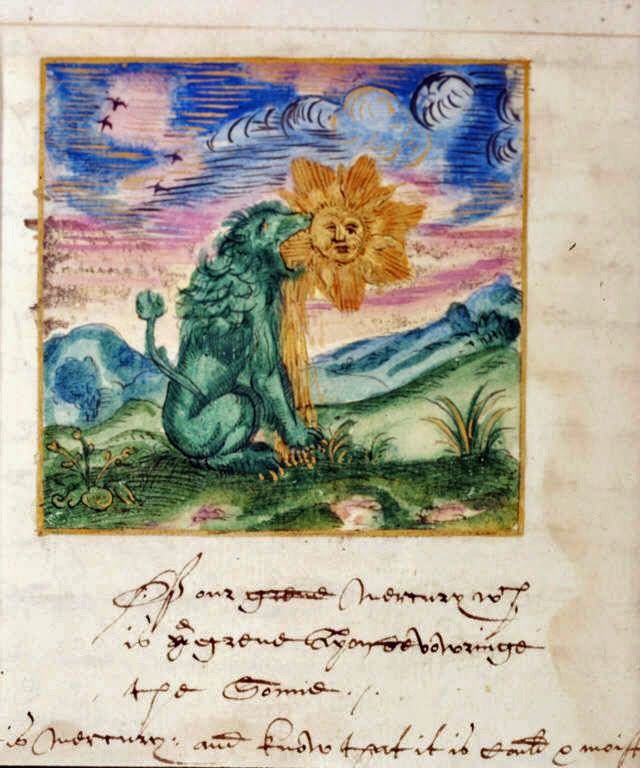 Off our grene Mercury wch
is ye grene Lyon devowringe
the Sonne ./.
is Mercury: and know that it is could & moist